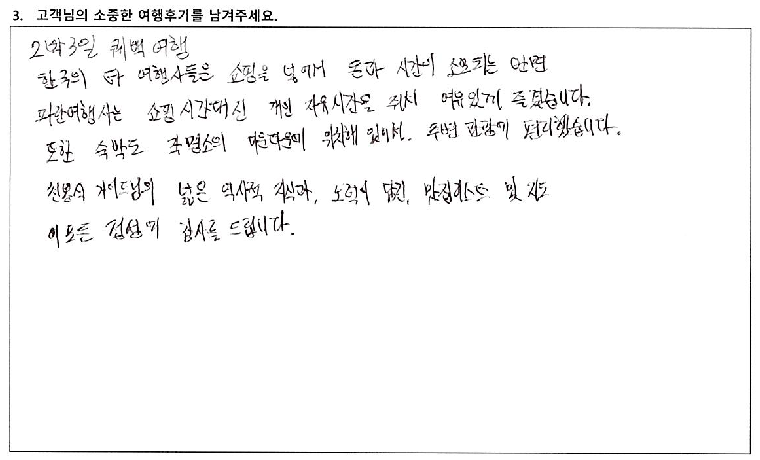 3. 고객님의 소중한 여행후기를 남겨주세요.
2박3일 퀘벡 여행
한국의 타 여행사들은 쇼핑을 넣어서 돈과 시간이 소모되는 반면
파란여행사는 쇼핑시간대신 개인 자유시간을 주셔서 여유있게 즐겼습니다.
또한 숙박도 주명소의 다운타운에 위치해 있어서. 주변 관광이 편리했습니다.
가이드님의 넓은 역사적 지식과, 노력이 담긴, 맛집리스트 및 지도
이 모든 정성에 감사를 드립니다.